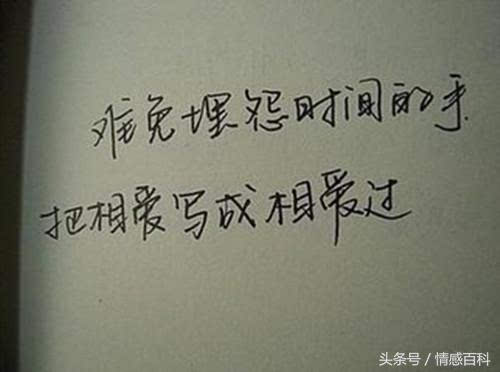 难免埋怨时间的手
把相爱写成相爱过
头条号／情感百科